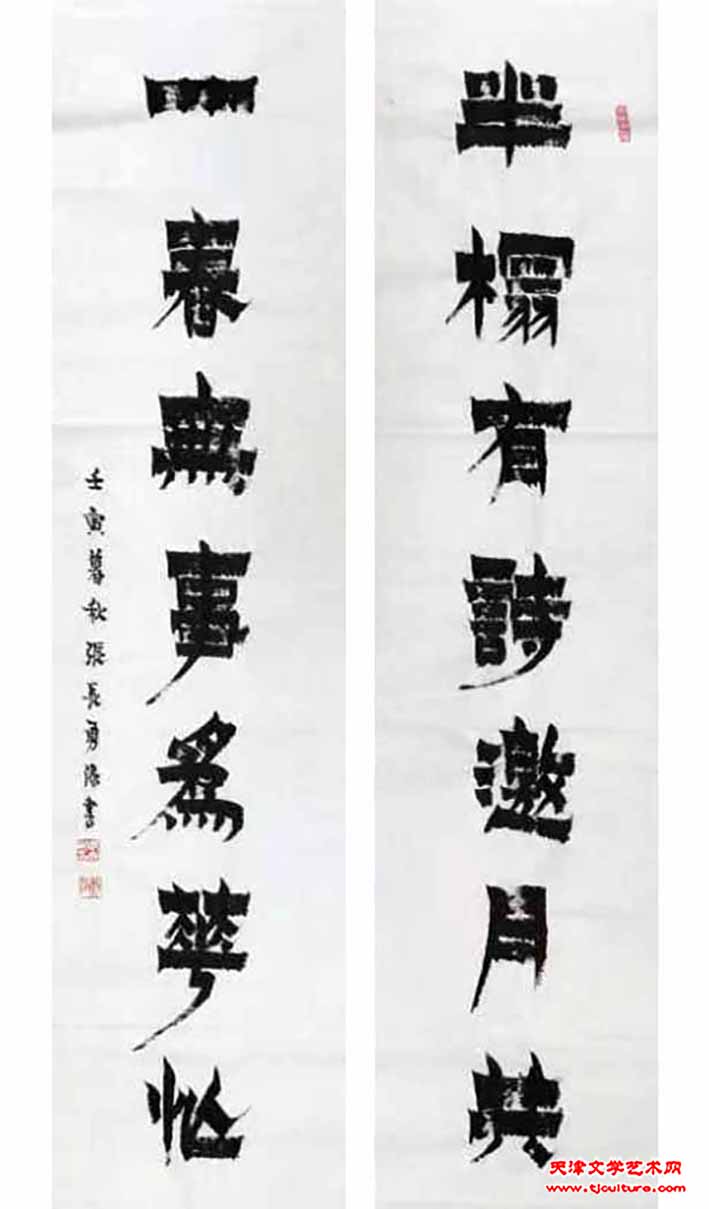 半榻有詩邀月共
一春無事爲花忙
壬寅暮秋張長勇漆書
天津文学艺术网
www.tjculture.com